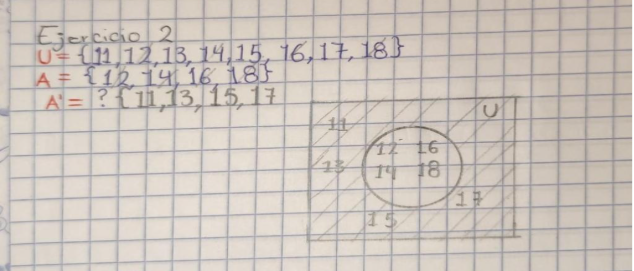 Ejercicio 2
U = {11, 12, 13, 14, 15, 16, 17, 18}
A = {12, 14, 16, 18}
A' = ? {11, 13, 15, 17
U
11
12 16
13
14 18
17
15